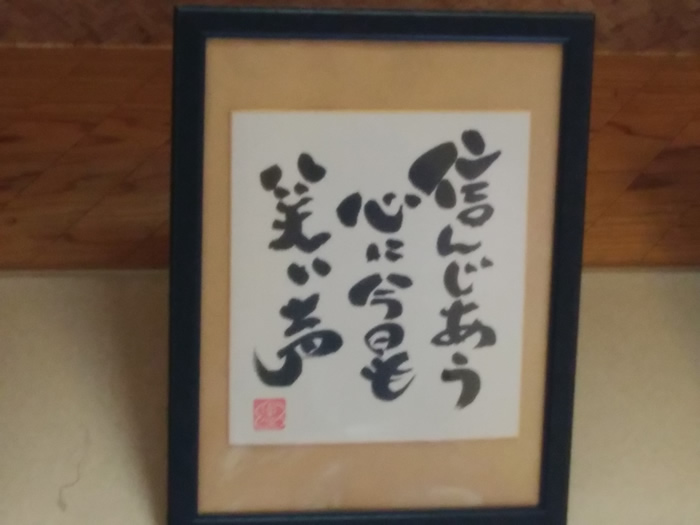 信んじあう
心に今日も
笑い声